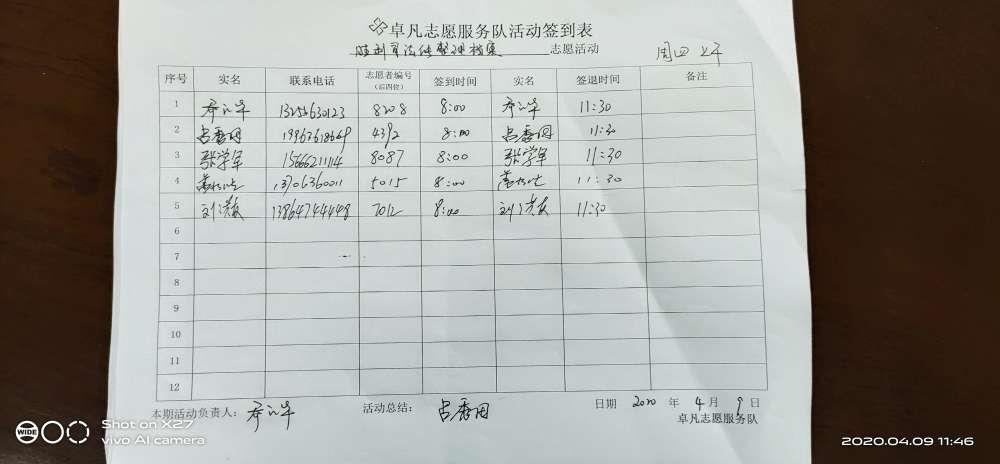 卓凡志愿服务队活动签到表
胜利司法所整理档案 志愿活动 周四上午
序号 实名 联系电话 志愿者编号 签到时间 实名 签退时间 备注
(后四位)
1 13255630123 8208 8:00 11:30
2 4392 8:00 11:30
3 张学军 15666211114 8087 8:00 张学军 11:30
4 13706360011 5015 8:00 11:30
5 刘洪敏 13864744448 7012 8:00 刘洪敏 11:30
6
7
8
9
10
11
12
本期活动负责人: 活动总结: 日期 2020 年 4 月 9 日
卓凡志愿服务队
WIDE
Shot on X27
vivo AI camera
2020.04.09 11:46